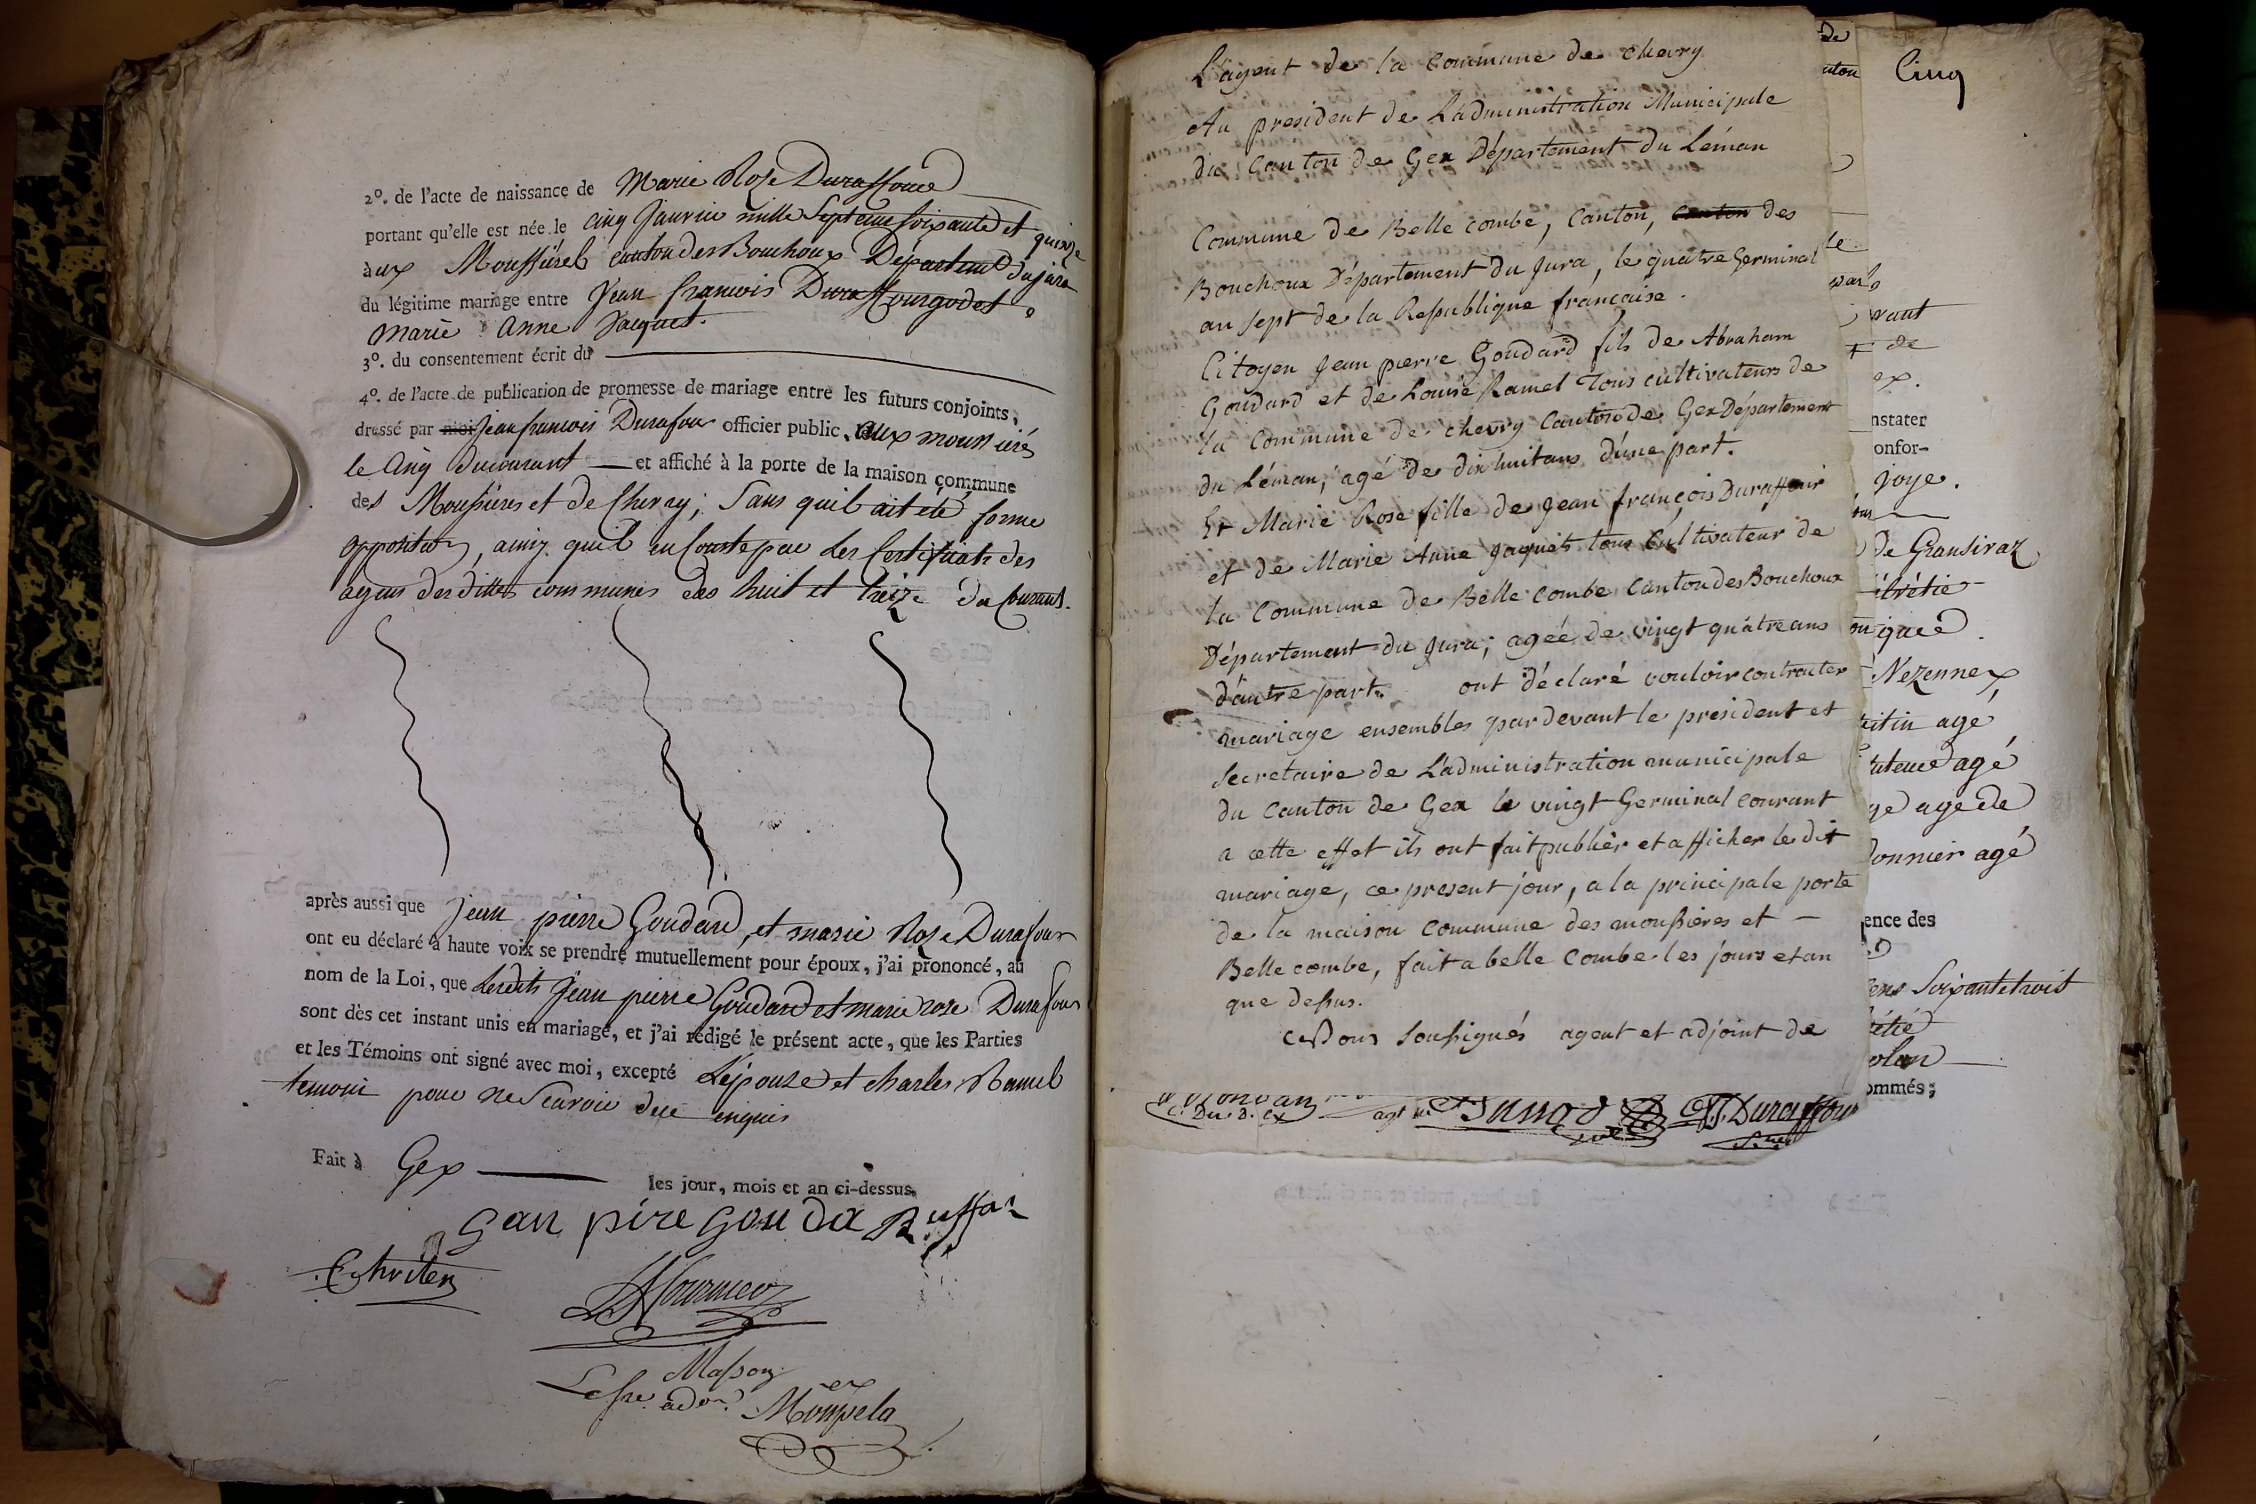 2º. de l'acte de naissance de Marie Rose Duraffour
portant qu'elle est née le cinq Janvier mille Septcent Soixante et quinze
aux Moussières canton des Bouchoux Département du jura
du légitime mariage entre Jean francois Duraffourgodet &
Marie Anne Jacquet.
3º. du consentement écrit du
4º. de l'acte de publication de promesse de mariage entre les futurs conjoints,
dressé par moi Jean francois Durafour officier public, aux moussières
le cinq du courant et affiché à la porte de la maison commune
des Moussieres et de Chevry; Sans quil ait été formé
opposition, ainsy quil en Conste par les Certificats des
agens des dittes communes des huit et treize du Courant.
après aussi que Jean pierre Goudard, et marie Rose Durafour
ont eu déclaré à haute voix se prendre mutuellement pour époux, j'ai prononcé, au
nom de la Loi, que Lesdits Jean pierre Goudard et marie rose Durafour
sont dès cet instant unis en mariage, et j'ai rédigé le présent acte, que les Parties
et les Témoins ont signé avec moi, excepté L'épouse et charles Ramel
temoin pour ne Scavoir de ce enquis
Fait à Gex les jour, mois et an ci-dessus.
gan pire gouda
Masson
L'agent de la Commune de Chevry
Au president de L'administration Municipale
du Canton de Gex Département du Léman
Commune de Belle combe, Canton, canton des
Bouchoux Département du Jura, le quatre Germinal
an sept de la Republique française.
Citoyen Jean pierre Goudard fils de Abraham
Goudard et de Louise Ramel Tous cultivateurs de
la Commune de chevry Canton de Gex Département
du Léman, agé de dix huit ans d'une part.
Et Marie Rose fille de Jean françois Duraffour
et de Marie Anne Jaquet tous Cultivateur de
la Commune de Belle combe Canton des Bouchoux
Département du Jura; agée de vingt quatre ans
d'autre part. ont déclaré vouloir contracter
mariage ensembles par devant le president et
Secretaire de L'administration municipale
du Canton de Gex le vingt Germinal courant
a cette effet ils ont fait publier et afficher le dit
mariage, ce present jour, a la principale porte
de la maison Commune des moussières et
Belle combe, fait a belle Combe les jours et an
que dessus.
Nous Soussignés agent et adjoint de
Duraffour
Cinq
de
vant
de
ex.
nstater
onfor-
joye.
de Gransiraz
Nezennex
agé
agé
age de
agé
ence des
Soixante trois
ommés;